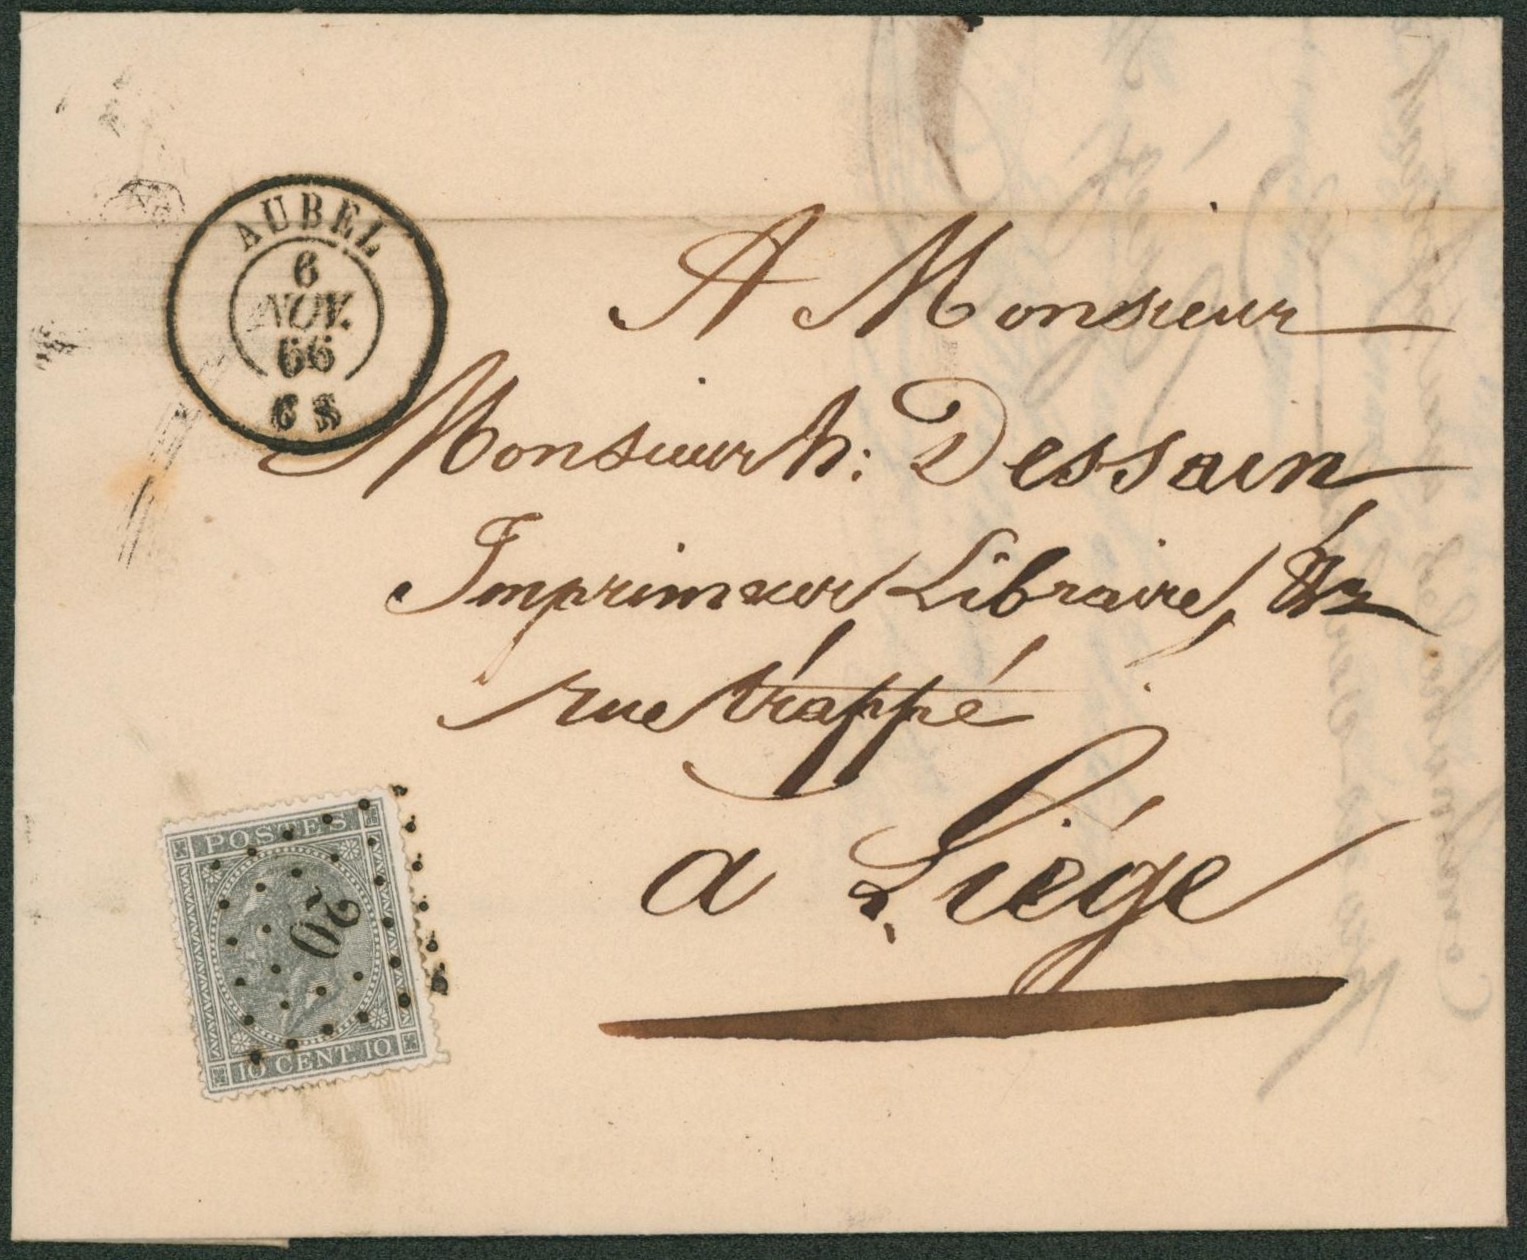 AUBEL
6
NOV.
66
6 S
A Monsieur
Monsieur h: Dessain
Imprimeur Libraire, &
rue trappé
a Liége
POSTES
20
10 CENT. 10